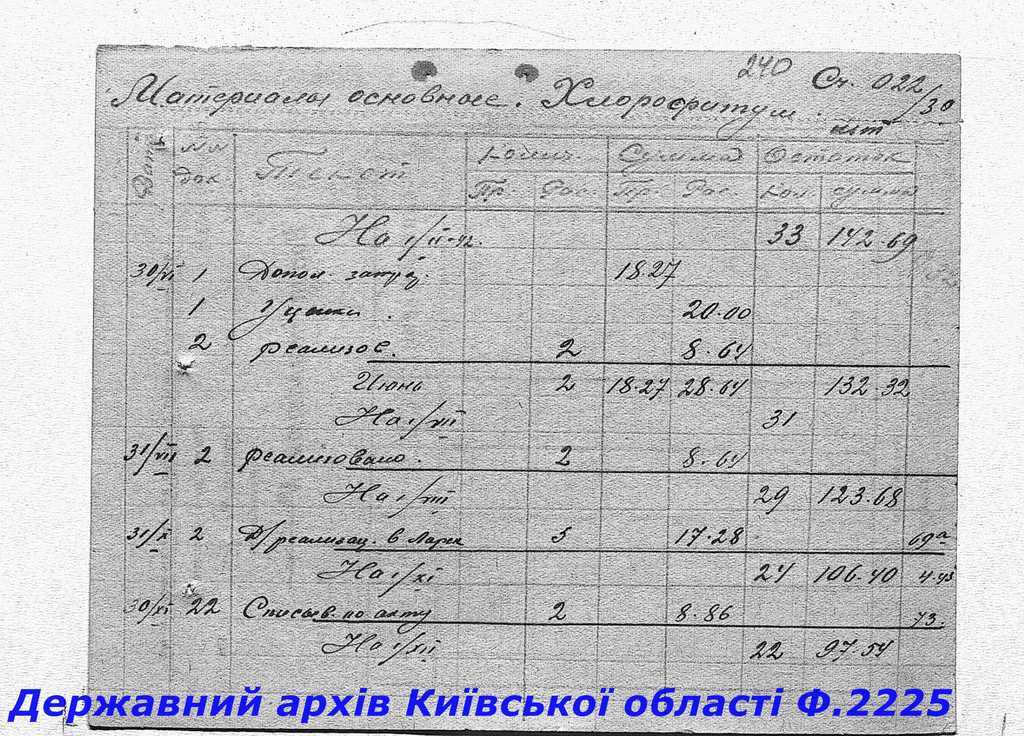 240
Материалы основные. Хлорофитум. Ст. 022/30
шт
Дата № док Текст Колич. Сумма Остаток
Пр. Рас. Пр. Рас. кол сумма
На 1/II-42. 33 142.69
30/VI 1 Допол. затрат. 18.27
1 Уценки. 20.00
2 реализов. 2 8.64
Июнь 2 18.27 28.64 132.32
На 1/VII 31
31/VII 2 Реализовано. 2 8.64
На 1/VIII 29 123.68
31/X 2 Д/реализац. в Ларек 5 17.28 69а
На 1/XI 24 106.40 4.43
30/XI 22 Списыв. по акту 2 8.86 73.
На 1/XII 22 97.54
Державний архів Київської області Ф.2225